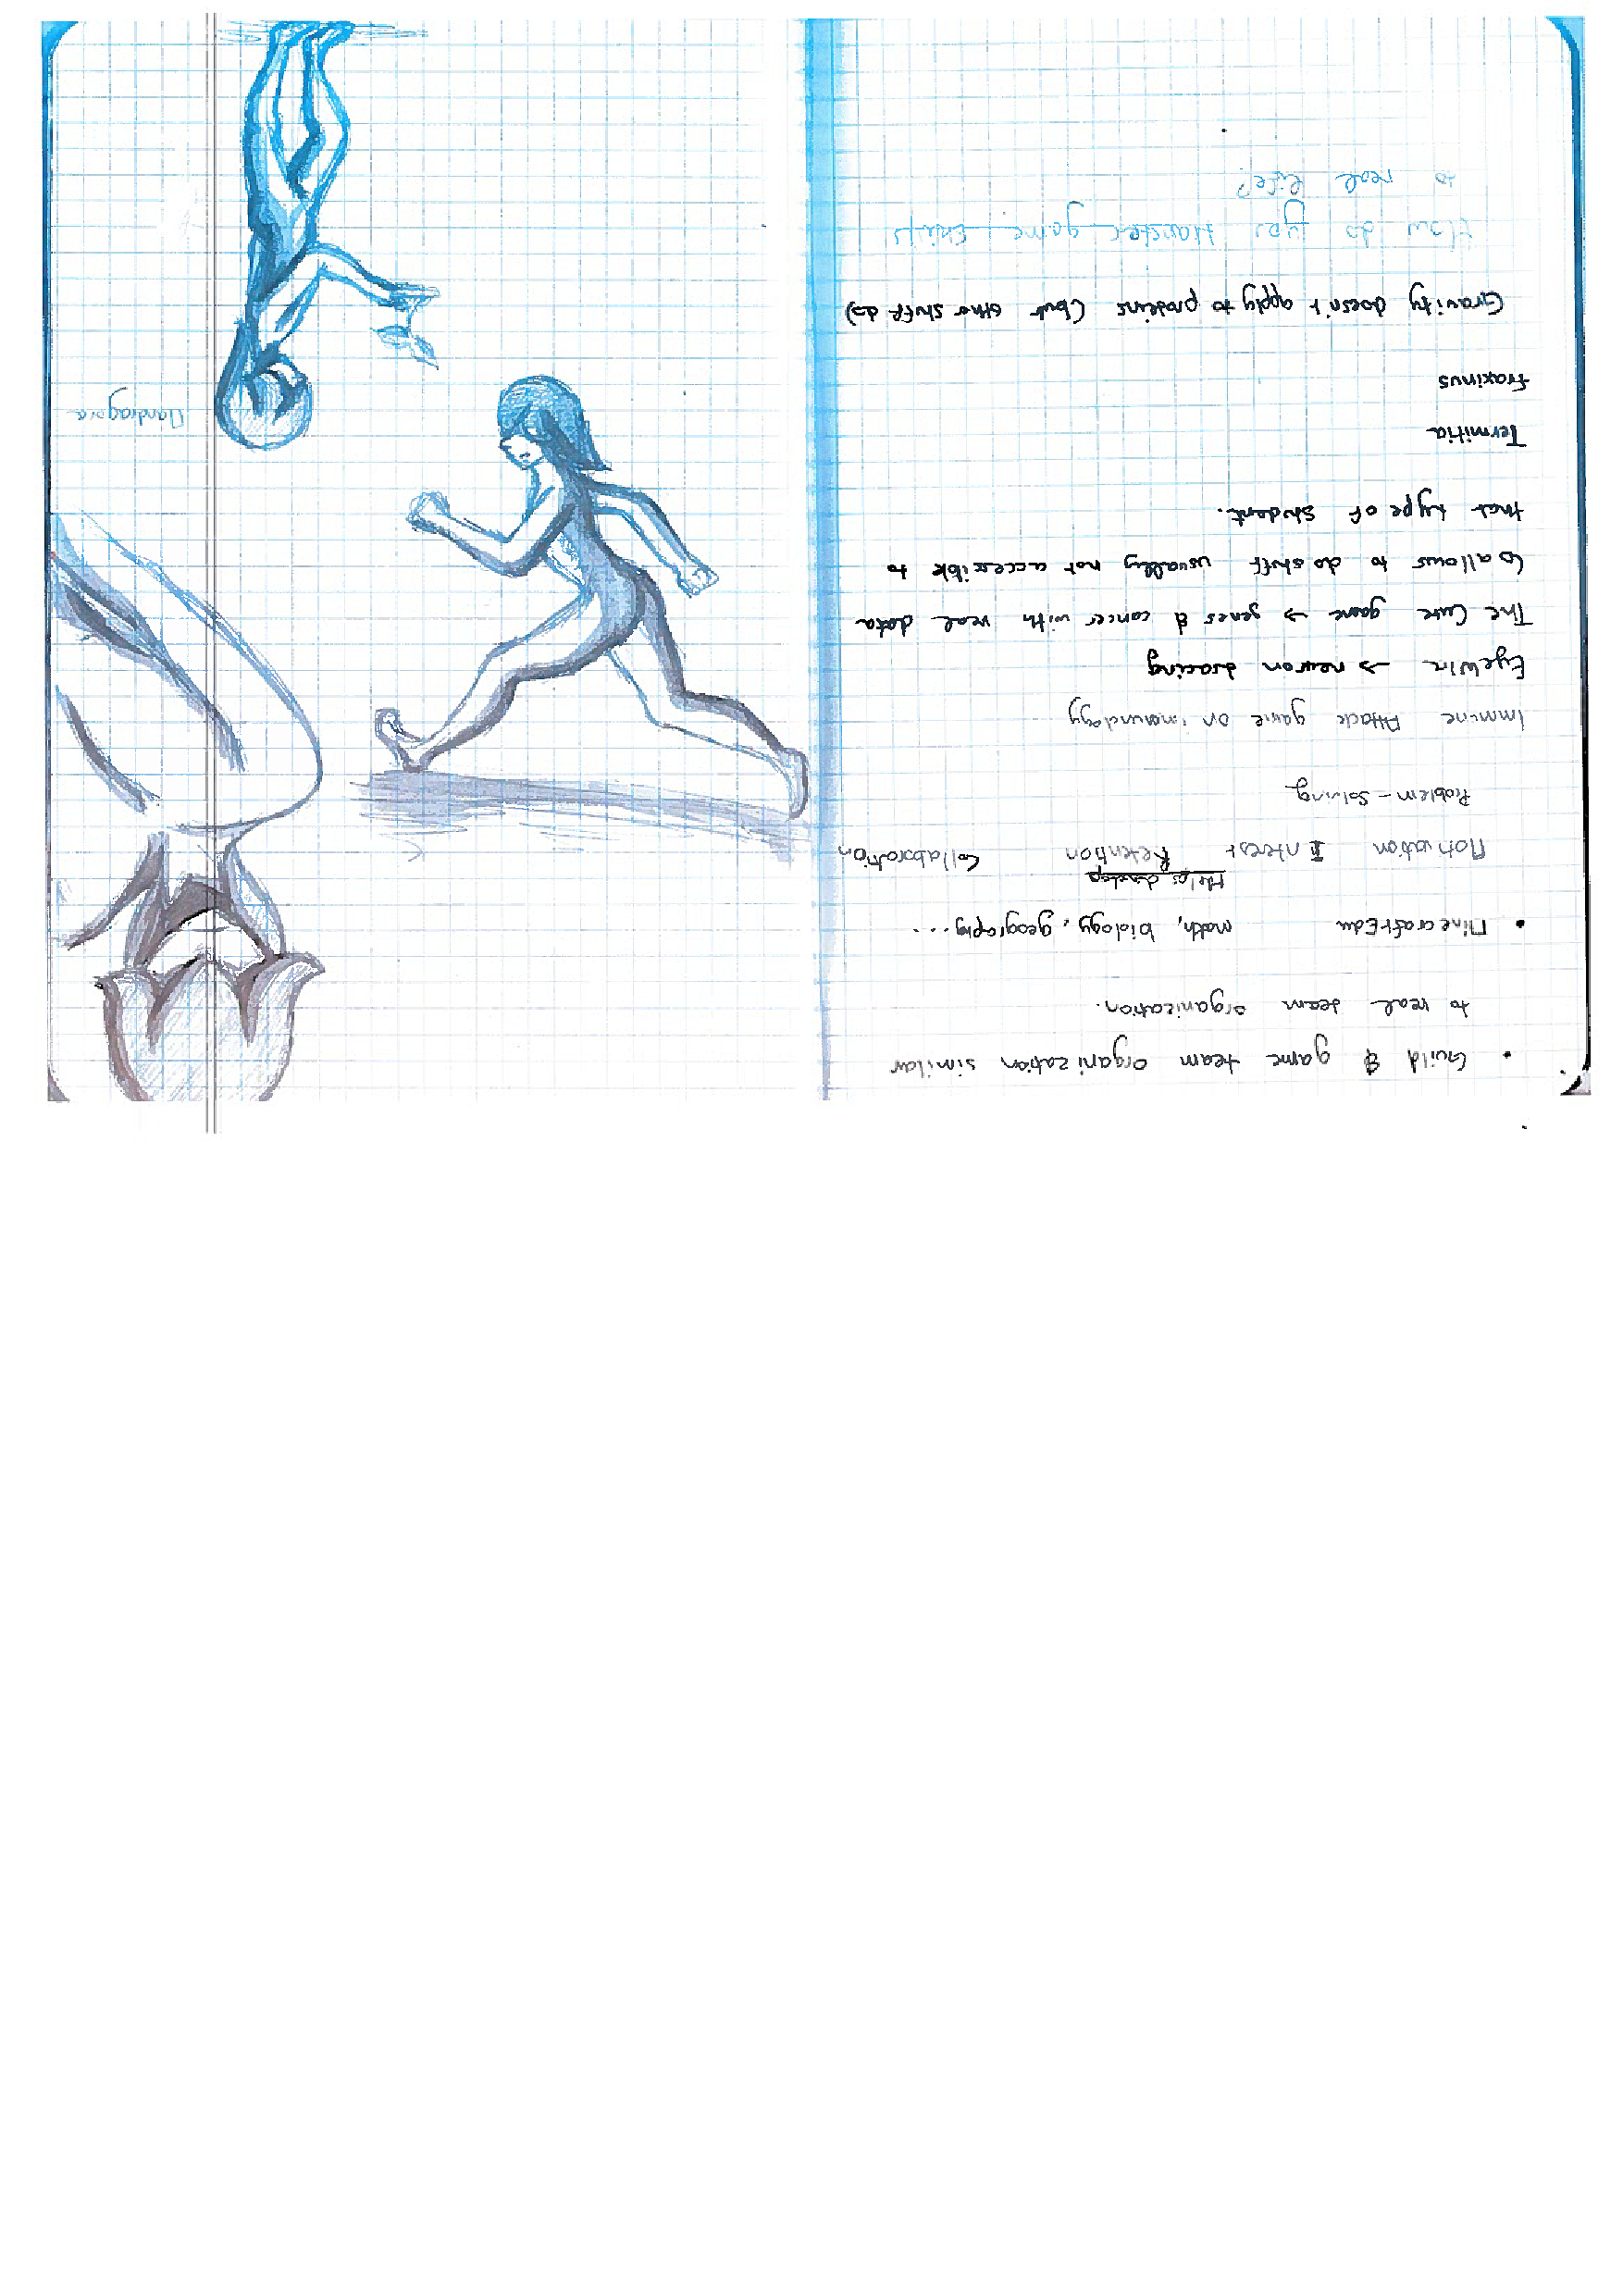 • Guild & game team organization similar
to real team organization.
• MinecraftEdu math, biology, geography...
Helps develop
Motivation Interest Retention Collaboration
Problem-Solving
Immune Attack game on immunology
EyeWire → neuron tracing
The Cure game → genes & cancer with real data
↳ allows to do stuff usually not accessible to
that type of student.
Termitia
Fraxinus
Gravity doesn't apply to proteins (but other stuff do)
How do you transfer game skills
to real life?
Mandragore